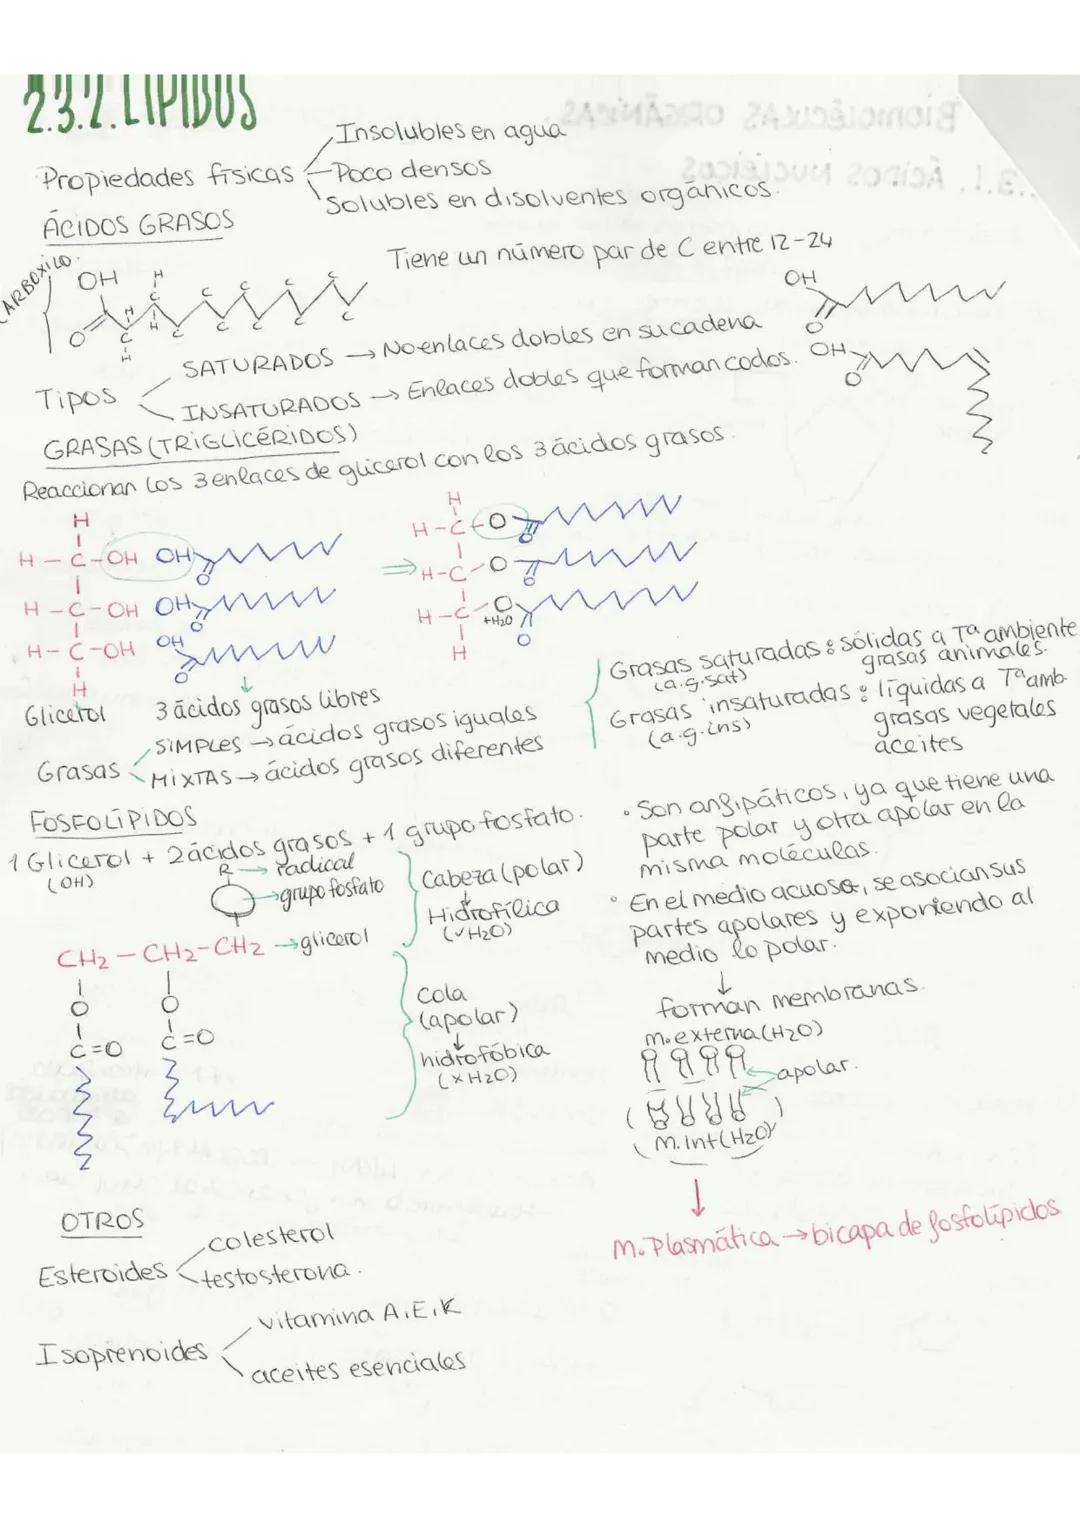 2.3.2. LÍPIDOS
Propiedades físicas
Insolubles en agua
Poco densos
Solubles en disolventes orgánicos.
ÁCIDOS GRASOS
Tiene un número par de C entre 12-24
CARBOXILO.
OH
O
OH
O
Tipos
SATURADOS → No enlaces dobles en su cadena
INSATURADOS → Enlaces dobles que forman codos.
OH
O
GRASAS (TRIGLICÉRIDOS)
Reaccionan los 3 enlaces de glicerol con los 3 ácidos grasos.
H
H - C - OH OH
O
H - C - OH OH
O
H - C - OH OH
O
H
H
H - C - O
O
⇒ H - C - O
O
H - C - O
+H2O
O
H
Glicerol
3 ácidos grasos libres
Grasas
SIMPLES → ácidos grasos iguales
MIXTAS → ácidos grasos diferentes
Grasas saturadas: sólidas a Tª ambiente
(a.g.sat) grasas animales.
Grasas insaturadas: líquidas a Tª amb.
(a.g.ins) grasas vegetales
aceites
FOSFOLÍPIDOS
1 Glicerol + 2 ácidos grasos + 1 grupo fosfato.
(OH)
R → radical
→ grupo fosfato
CH2 - CH2 - CH2 → glicerol
O O
C=O C=O
Cabeza (polar)
↓
Hidrofílica
(✓H2O)
Cola
(apolar)
↓
hidrofóbica
(xH2O)
• Son anfipáticos, ya que tiene una
parte polar y otra apolar en la
misma moléculas.
• En el medio acuoso, se asocian sus
partes apolares y exponiendo al
medio lo polar.
↓
forman membranas.
m.externa (H2O)
apolar.
m.int (H2O)
↓
M. Plasmática → bicapa de fosfolípidos
OTROS
Esteroides
colesterol
testosterona.
Isoprenoides
vitamina A, E, K
aceites esenciales